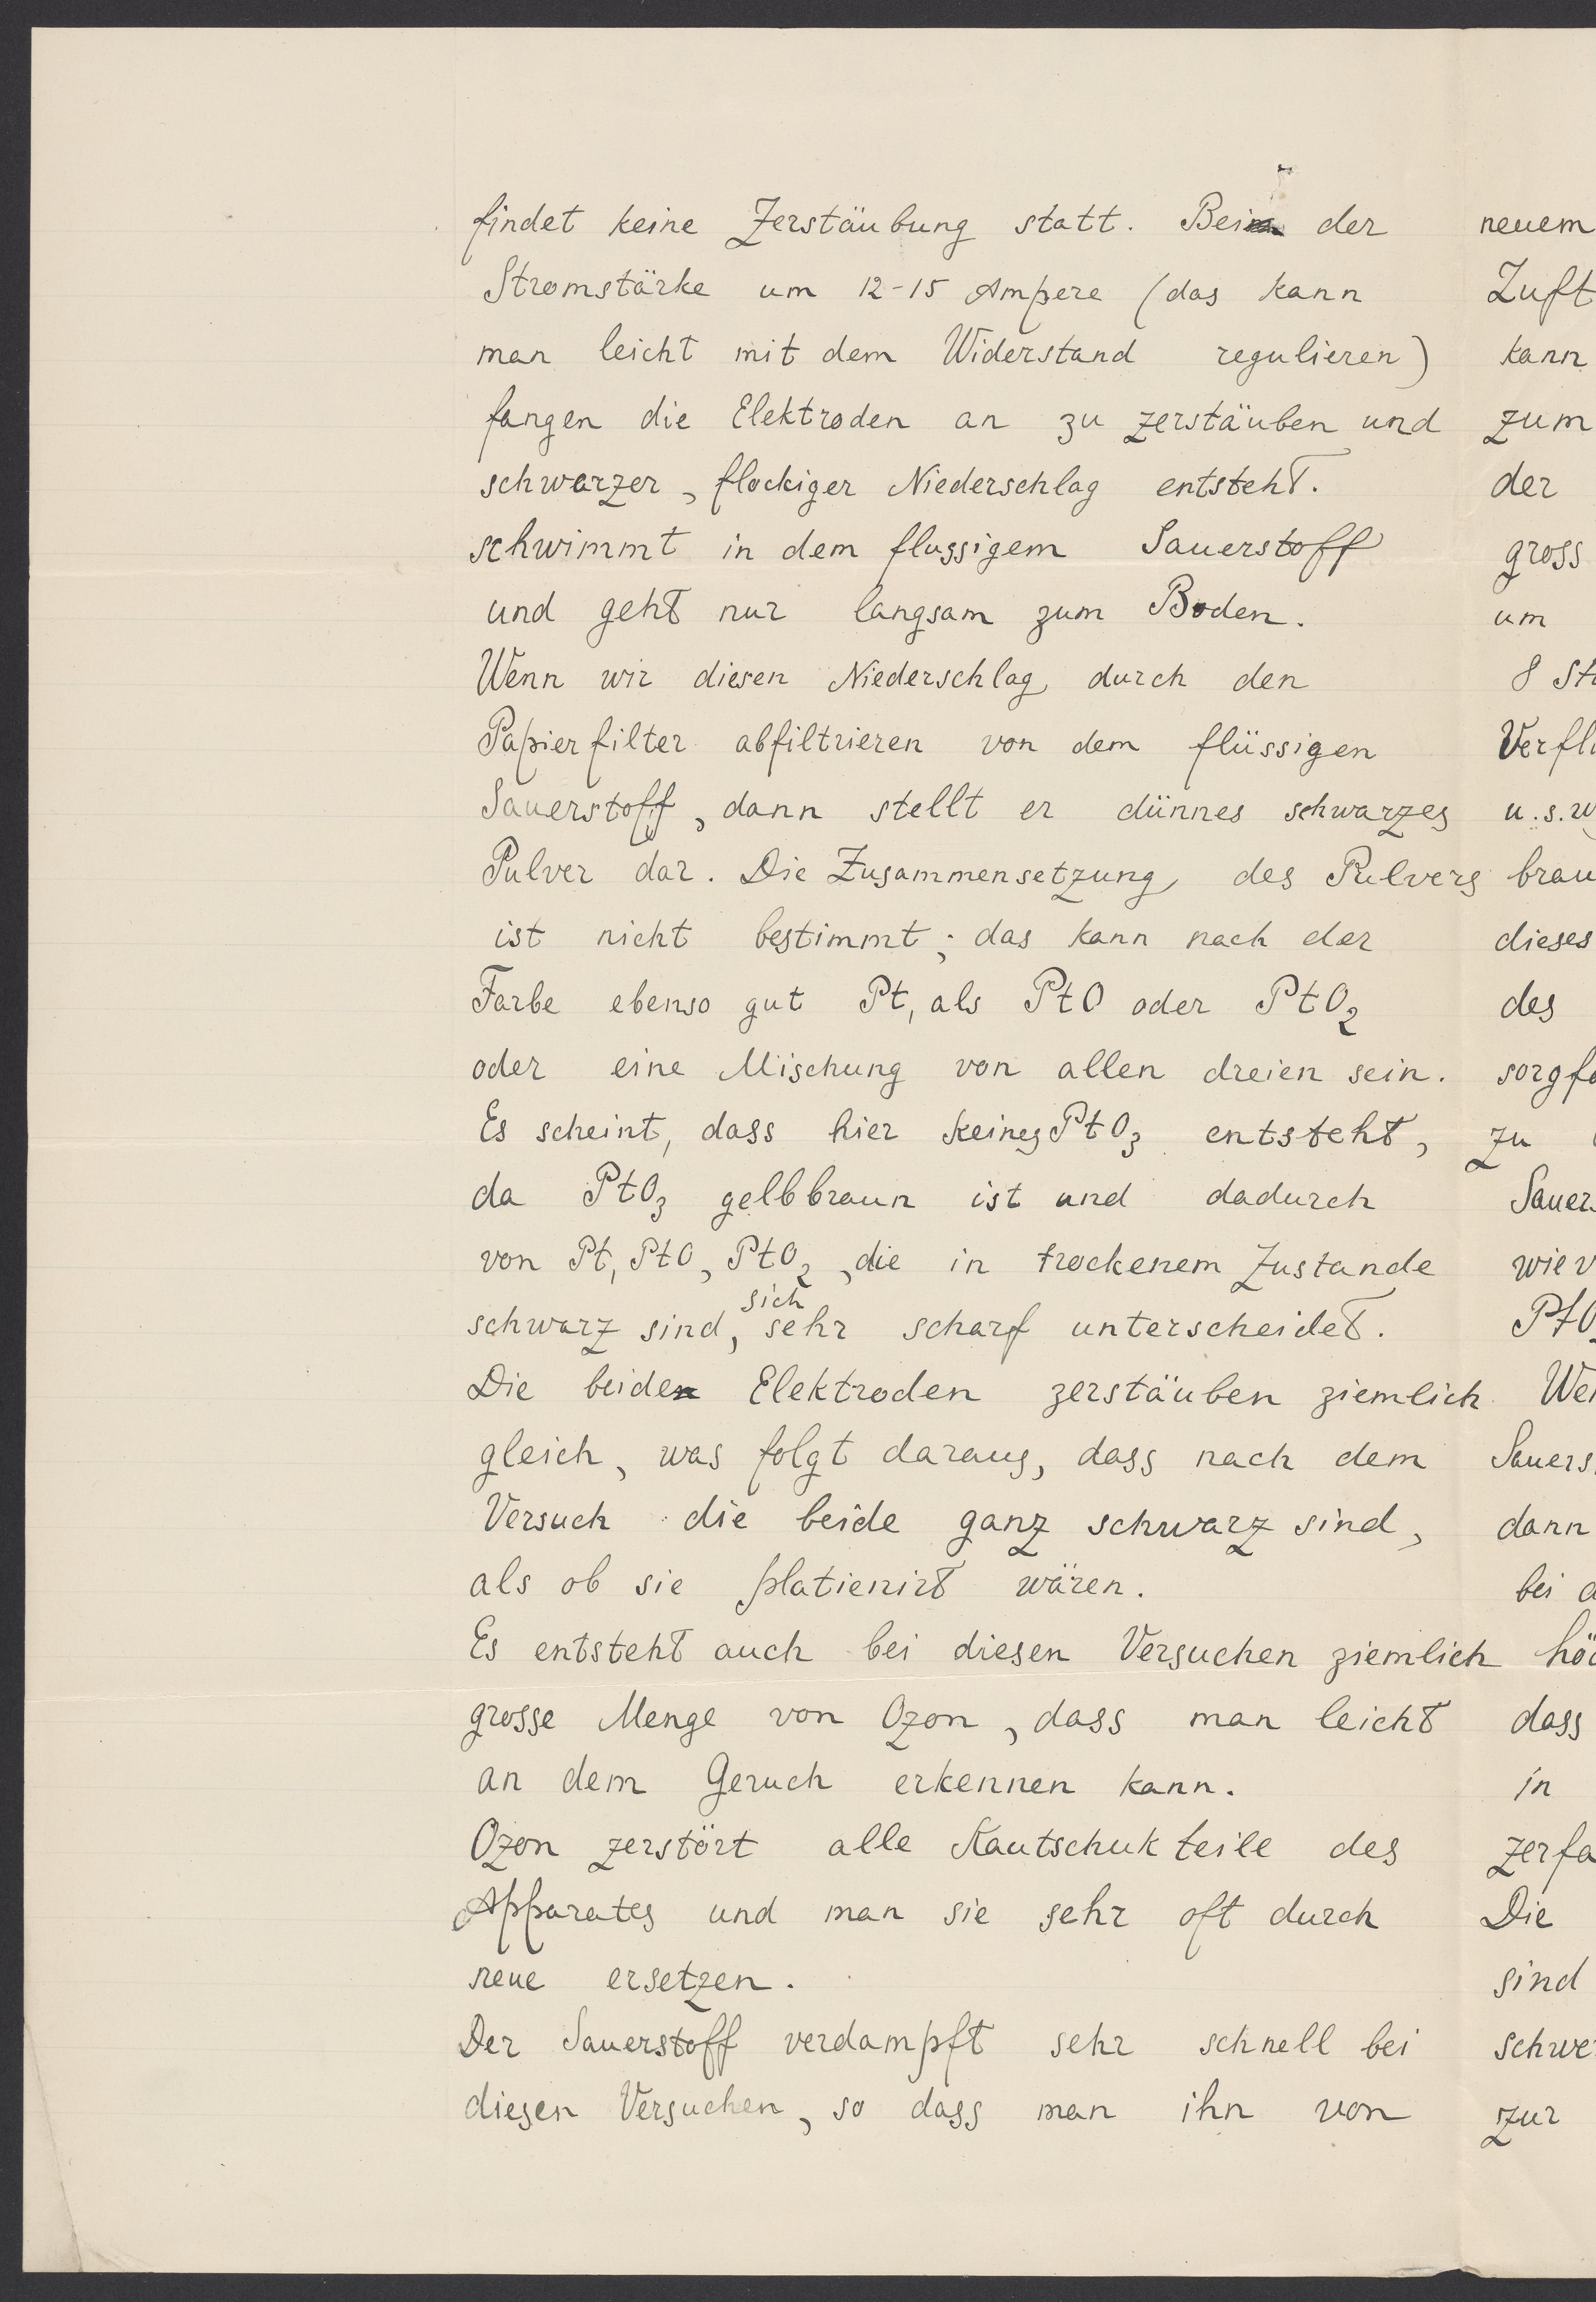 findet keine Zerstäubung statt. Bei der
Stromstärke um 12-15 Ampere (das kann
man leicht mit dem Widerstand regulieren)
fangen die Elektroden an zu zerstäuben und
schwarzer, flockiger Niederschlag entsteht.
schwimmt in dem flussigem Sauerstoff
und geht nur langsam zum Boden.
Wenn wir diesen Niederschlag durch den
Papierfilter abfiltrieren von dem flüssigen
Sauerstoff, dann stellt er dünnes schwarzes
Pulver dar. Die Zusammensetzung des Pulvers
ist nicht bestimmt; das kann nach der
Farbe ebenso gut Pt, als PtO oder PtO₂
oder eine Mischung von allen dreien sein.
Es scheint, dass hier keines PtO₃ entsteht,
da PtO₃ gelbbraun ist und dadurch
von Pt, PtO, PtO₂, die in trockenem Zustande
schwarz sind, sich sehr scharf unterscheidet.
Die beiden Elektroden zerstäuben ziemlich
gleich, was folgt daraus, dass nach dem
Versuch die beide ganz schwarz sind,
als ob sie platienirt wären.
Es entsteht auch bei diesen Versuchen ziemlich
grosse Menge von Ozon, dass man leicht
an dem Geruch erkennen kann.
Ozon zerstört alle Kautschukteile des
Apparates und man sie sehr oft durch
neue ersetzen.
Der Sauerstoff verdampft sehr schnell bei
diesen Versuchen, so dass man ihn von
neuem
Zuft
kann
zum
der
gross
um
8 St
Verfl
u.s.w
brau
dieses
des
sorgf
zu
Sauer
wiev
PtO
We
Sauers
dann
bei
hö
dass
in
zerfa
Die
sind
schwe
zur